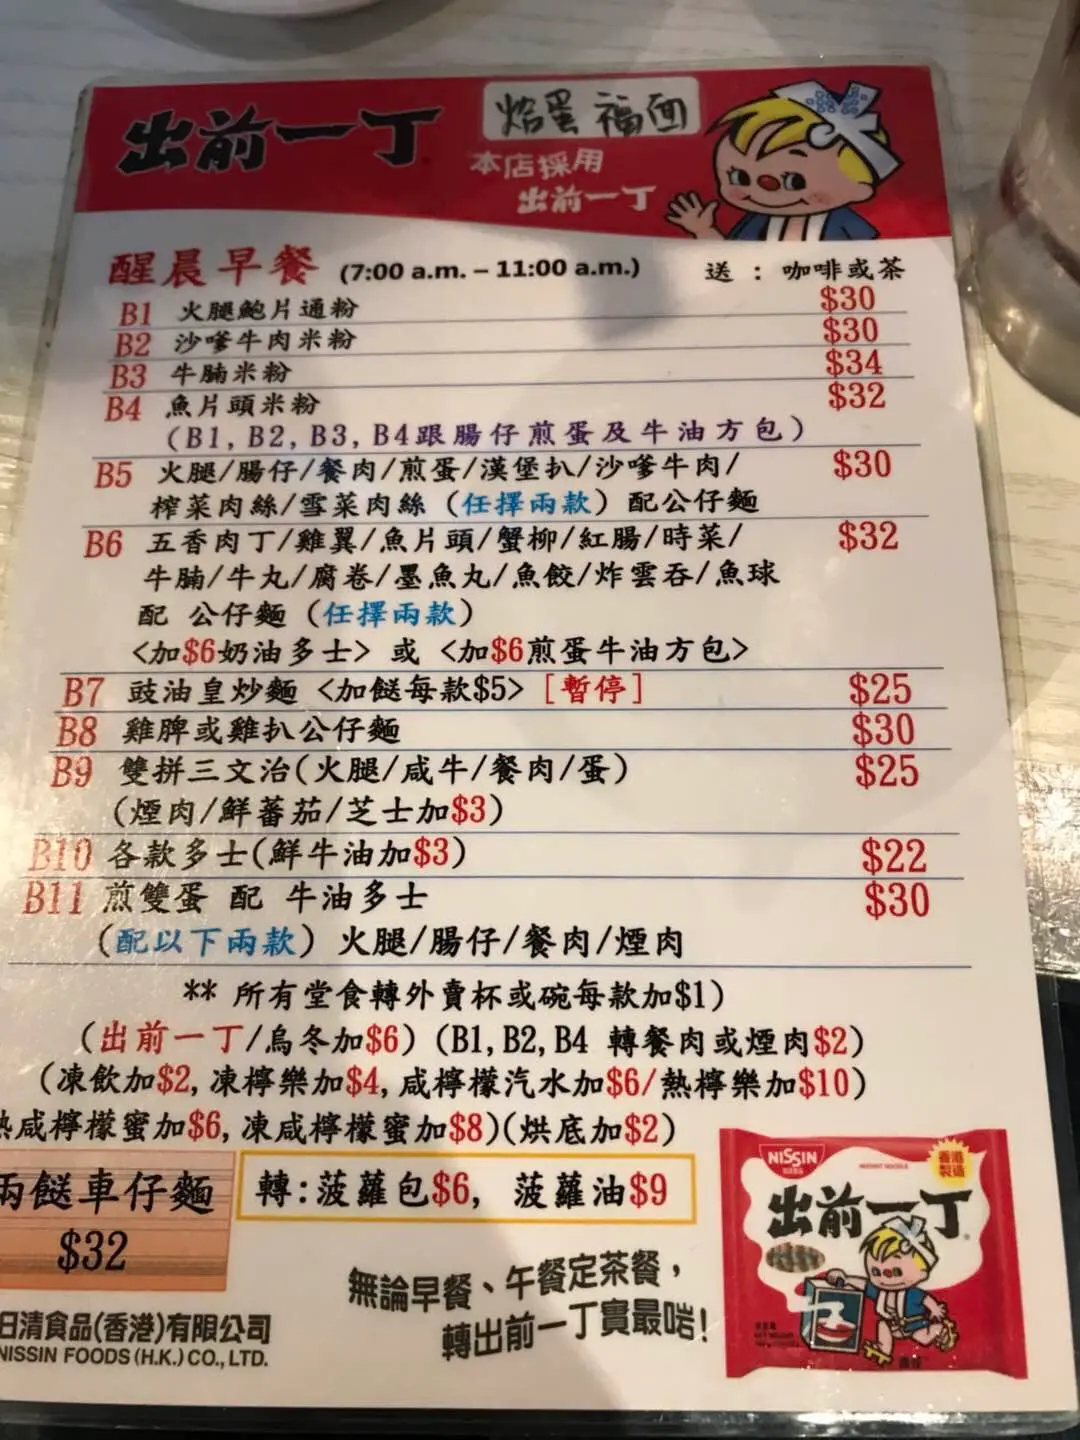 出前一丁
焓蛋 福面
本店採用
出前一丁
醒晨早餐 (7:00 a.m. – 11:00 a.m.) 送 : 咖啡或茶
B1 火腿鮑片通粉 $30
B2 沙嗲牛肉米粉 $30
B3 牛腩米粉 $34
B4 魚片頭米粉 $32
(B1, B2, B3, B4跟腸仔煎蛋及牛油方包)
B5 火腿/腸仔/餐肉/煎蛋/漢堡扒/沙嗲牛肉/ $30
榨菜肉絲/雪菜肉絲 (任擇兩款) 配公仔麵
B6 五香肉丁/雞翼/魚片頭/蟹柳/紅腸/時菜/ $32
牛腩/牛丸/腐卷/墨魚丸/魚餃/炸雲吞/魚球
配 公仔麵 (任擇兩款)
<加$6奶油多士> 或 <加$6煎蛋牛油方包>
B7 豉油皇炒麵 <加餸每款$5> [暫停] $25
B8 雞脾或雞扒公仔麵 $30
B9 雙拼三文治(火腿/咸牛/餐肉/蛋) $25
(煙肉/鮮蕃茄/芝士加$3)
B10 各款多士(鮮牛油加$3) $22
B11 煎雙蛋 配 牛油多士 $30
(配以下兩款) 火腿/腸仔/餐肉/煙肉
** 所有堂食轉外賣杯或碗每款加$1)
(出前一丁/烏冬加$6) (B1, B2, B4 轉餐肉或煙肉$2)
(凍飲加$2, 凍檸樂加$4, 咸檸檬汽水加$6/熱檸樂加$10)
熱咸檸檬蜜加$6, 凍咸檸檬蜜加$8)(烘底加$2)
兩餸車仔麵
$32
轉:菠蘿包$6, 菠蘿油$9
無論早餐、午餐定茶餐，
轉出前一丁實最啱!
日清食品(香港)有限公司
NISSIN FOODS (H.K.) CO., LTD.
NISSIN
INSTANT NOODLE
香港
製造
出前一丁